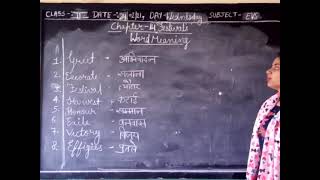 CLASS - III DATE - 21 DAY - Wednesday SUBJECT - EVS
Chapter-14 Festivals
Word Meaning
1. Greet - अभिवादन
2. Decorate - सजाना
3. Festival - त्योहार
4. Harvest - कटाई
5. Honour - सम्मान
6. Exile - वनवास
7. Victory - विजय
8. Effigies - पुतले